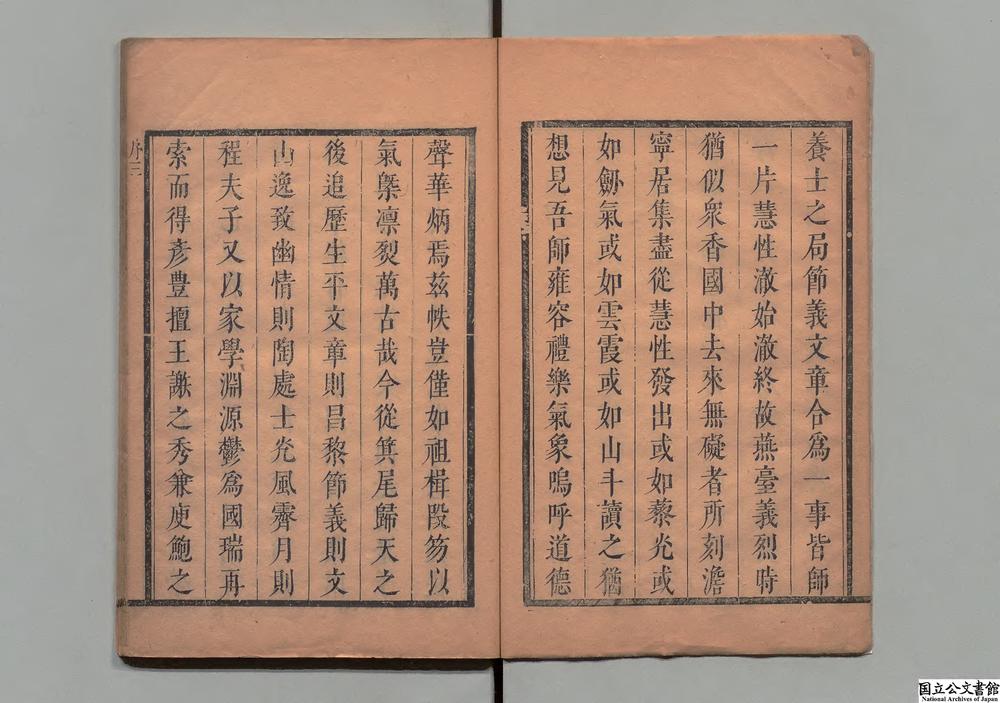 養士之局節義文章合為一事皆師
一片慧性澈始澈終故燕臺義烈時
猶似衆香國中去來無礙者所刻澹
寧居集盡從慧性發出或如藜光或
如劒氣或如雲霞或如山斗讀之猶
想見吾師雍容禮樂氣象嗚呼道德
聲華炳焉茲帙豈僅如祖楫段笏以
氣槩凛烈萬古哉今從箕尾歸天之
後追歷生平文章則昌黎節義則文
山逸致幽情則陶處士光風霽月則
程夫子又以家學淵源鬱為國瑞再
索而得彥豊擅王謝之秀兼庾鮑之
序三
国立公文書館
National Archives of Japan